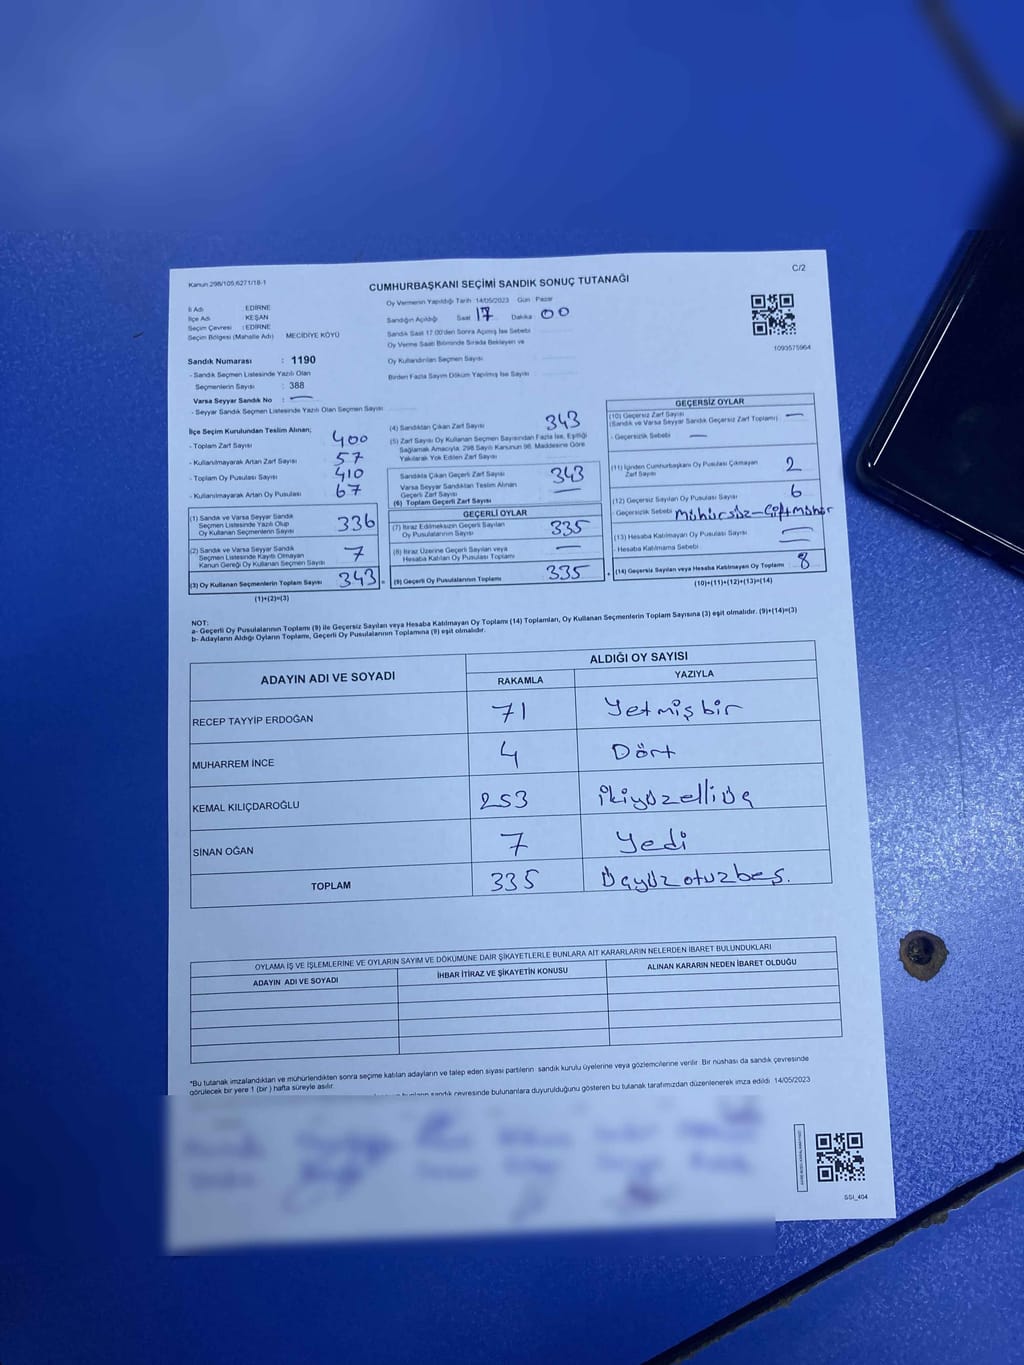 Kanun 298/105,6271/18-1
C/2
CUMHURBAŞKANI SEÇİMİ SANDIK SONUÇ TUTANAĞI
İl Adı EDİRNE
İlçe Adı KEŞAN
Seçim Çevresi : EDİRNE
Seçim Bölgesi (Mahalle Adı) MECİDİYE KÖYÜ
Sandık Numarası : 1190
- Sandık Seçmen Listesinde Yazılı Olan
Seçmenlerin Sayısı : 388
Varsa Seyyar Sandık No : —
- Seyyar Sandık Seçmen Listesinde Yazılı Olan Seçmen Sayısı
Oy Vermenin Yapıldığı Tarih :14/05/2023 Gün : Pazar
Sandığın Açıldığı Saat 17 Dakika 00
Sandık Saat 17.00'den Sonra Açılmış İse Sebebi
Oy Verme Saati Bitiminde Sırada Bekleyen ve
Oy Kullandırılan Seçmen Sayısı
Birden Fazla Sayım Döküm Yapılmış İse Sayısı
1093575964
İlçe Seçim Kurulundan Teslim Alınan;
- Toplam Zarf Sayısı 400
- Kullanılmayarak Artan Zarf Sayısı 57
- Toplam Oy Pusulası Sayısı 410
- Kullanılmayarak Artan Oy Pusulası 67
(1) Sandık ve Varsa Seyyar Sandık
Seçmen Listesinde Yazılı Olup
Oy Kullanan Seçmenlerin Sayısı 336
(2) Sandık ve Varsa Seyyar Sandık
Seçmen Listesinde Kayıtlı Olmayan
Kanun Gereği Oy Kullanan Seçmen Sayısı 7
(3) Oy Kullanan Seçmenlerin Toplam Sayısı 343 =
(1)+(2)=(3)
(4) Sandıktan Çıkan Zarf Sayısı 343
(5) Zarf Sayısı Oy Kullanan Seçmen Sayısından Fazla İse, Eşitliği
Sağlamak Amacıyla; 298 Sayılı Kanunun 98. Maddesine Göre
Yakılarak Yok Edilen Zarf Sayısı
Sandıkta Çıkan Geçerli Zarf Sayısı 343
Varsa Seyyar Sandıktan Teslim Alınan
Geçerli Zarf Sayısı —
(6) Toplam Geçerli Zarf Sayısı
GEÇERLİ OYLAR
(7) İtiraz Edilmeksizin Geçerli Sayılan
Oy Pusulası Sayısı 335
(8) İtiraz Üzerine Geçerli Sayılan veya
Hesaba Katılan Oy Pusulası Toplamı —
(9) Geçerli Oy Pusulalarının Toplamı 335 +
GEÇERSİZ OYLAR
(10) Geçersiz Zarf Sayısı
(Sandık ve Varsa Seyyar Sandık Geçersiz Zarf Toplamı) —
- Geçersizlik Sebebi —
(11) İçinden Cumhurbaşkanı Oy Pusulası Çıkmayan
Zarf Sayısı 2
(12) Geçersiz Sayılan Oy Pusulası Sayısı 6
- Geçersizlik Sebebi Mühürsüz-Çiftmühür
(13) Hesaba Katılmayan Oy Pusulası Sayısı —
- Hesaba Katılmama Sebebi —
(14) Geçersiz Sayılan veya Hesaba Katılmayan Oy Toplamı : 8
(10)+(11)+(12)+(13)=(14)
NOT:
a- Geçerli Oy Pusulalarının Toplamı (9) ile Geçersiz Sayılan veya Hesaba Katılmayan Oy Toplamı (14) Toplamları, Oy Kullanan Seçmenlerin Toplam Sayısına (3) eşit olmalıdır. (9)+(14)=(3)
b- Adayların Aldığı Oyların Toplamı, Geçerli Oy Pusulalarının Toplamına (9) eşit olmalıdır.
ADAYIN ADI VE SOYADI ALDIĞI OY SAYISI
RAKAMLA YAZIYLA
RECEP TAYYİP ERDOĞAN 71 Yetmişbir
MUHARREM İNCE 4 Dört
KEMAL KILIÇDAROĞLU 253 ikiyüzelliüç
SİNAN OĞAN 7 Yedi
TOPLAM 335 Üçyüzotuzbeş.
OYLAMA İŞ VE İŞLEMLERİNE VE OYLARIN SAYIM VE DÖKÜMÜNE DAİR ŞİKAYETLERLE BUNLARA AİT KARARLARIN NELERDEN İBARET BULUNDUKLARI
ADAYIN ADI VE SOYADI İHBAR İTİRAZ VE ŞİKAYETİN KONUSU ALINAN KARARIN NEDEN İBARET OLDUĞU
*Bu tutanak imzalandıktan ve mühürlendikten sonra seçime katılan adayların ve talep eden siyasi partilerin sandık kurulu üyelerine veya gözlemcilerine verilir. Bir nüshası da sandık çevresinde
görülecek bir yere 1 (bir ) hafta süreyle asılır.
sandık çevresinde bulunanlara duyurulduğunu gösteren bu tutanak tarafımızdan düzenlenerek imza edildi. 14/05/2023
SSI_404